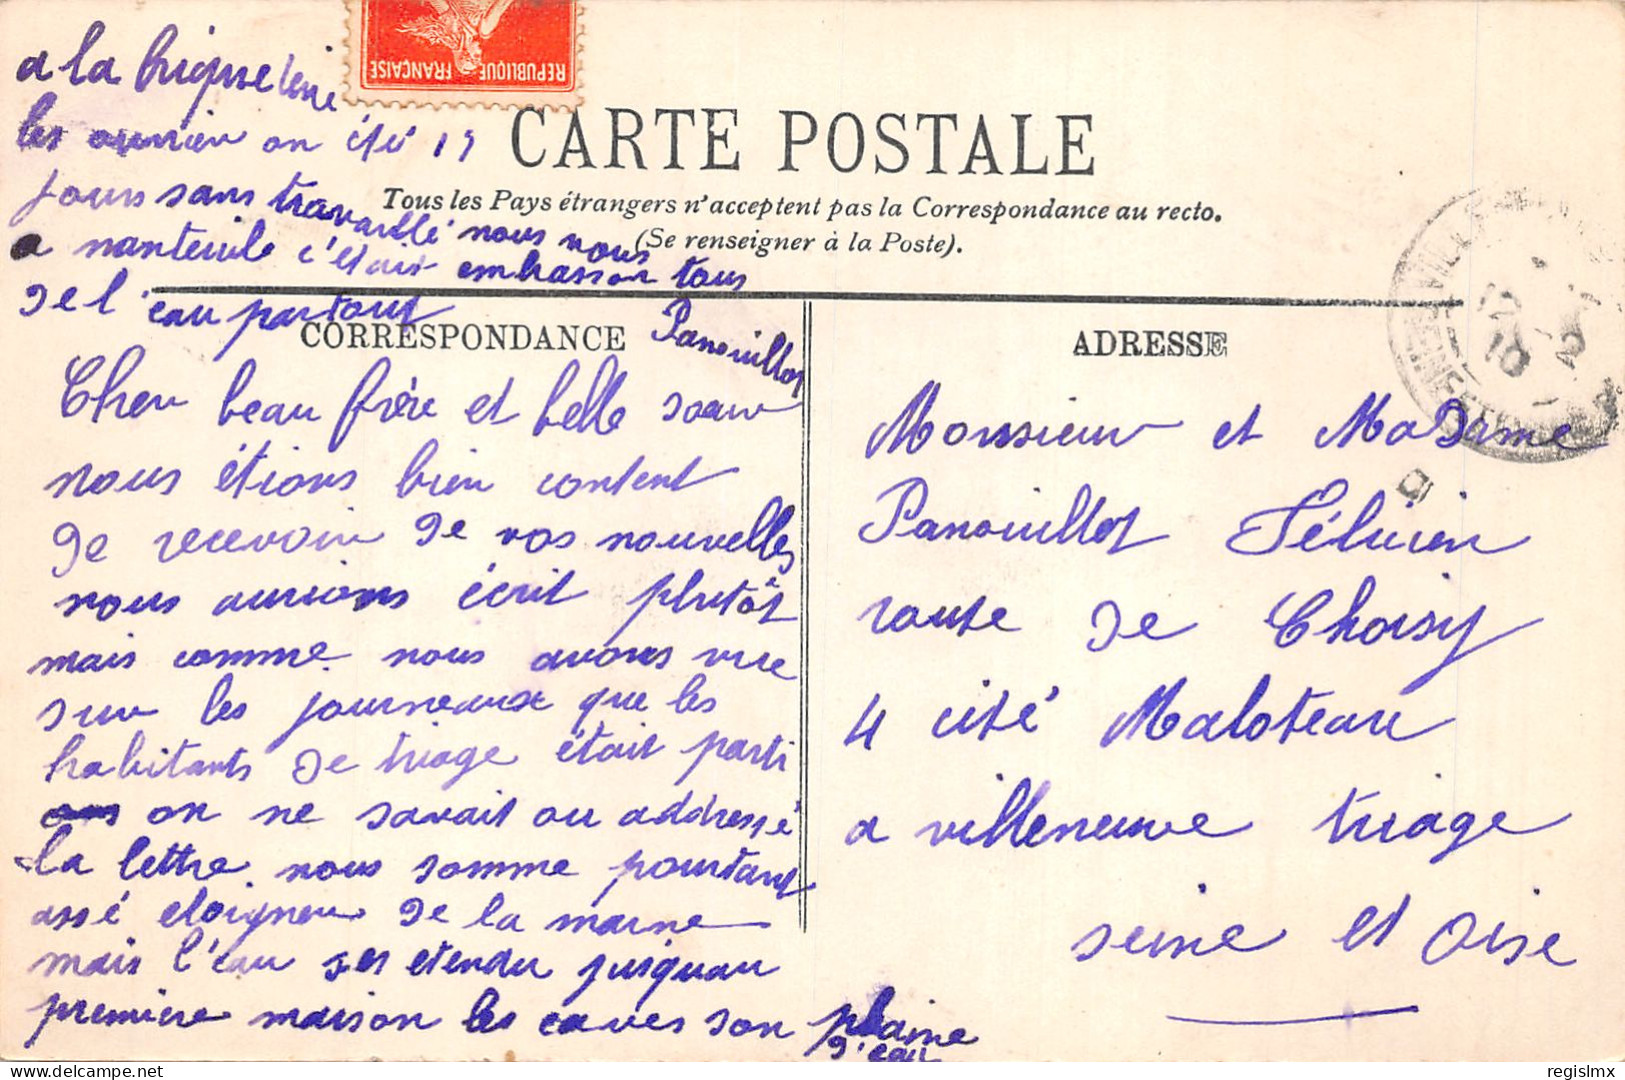 a la briqueterie
les ouvrier on été 15
jours sans travaillé nous nous
a nanteuile c'étais embrasson tous
de l'eau partout
Panouillot
REPUBLIQUE FRANÇAISE
CARTE POSTALE
Tous les Pays étrangers n'acceptent pas la Correspondance au recto.
(Se renseigner à la Poste).
CORRESPONDANCE
Cher beau frère et belle soeur
nous étions bien content
de recevoir de vos nouvelles
nous aurions écrit plutôt
mais comme nous avons vue
sur les journeaux que les
habitants de triage était parti
on ne savait ou addressé
la lettre nous somme pourtant
assé eloigner de la marne
mais l'eau ses etendu jusquau
première maison les caves son plaine
d'eau
ADRESSE
Monsieur et Madame
Panouillot Félicien
route de Choisy
4 cité Maloteau
a villeneuve triage
seine et oise
regislmx